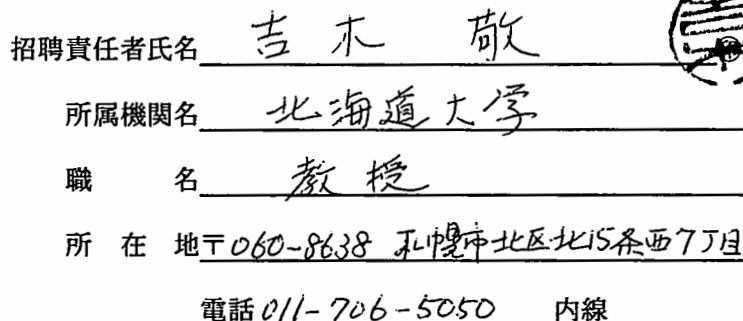 招聘責任者氏名 吉木 敬
所属機関名 北海道大学
職 名 教授
所 在 地 〒060-8638 札幌市北区北15条西7丁目
電話 011-706-5050 内線